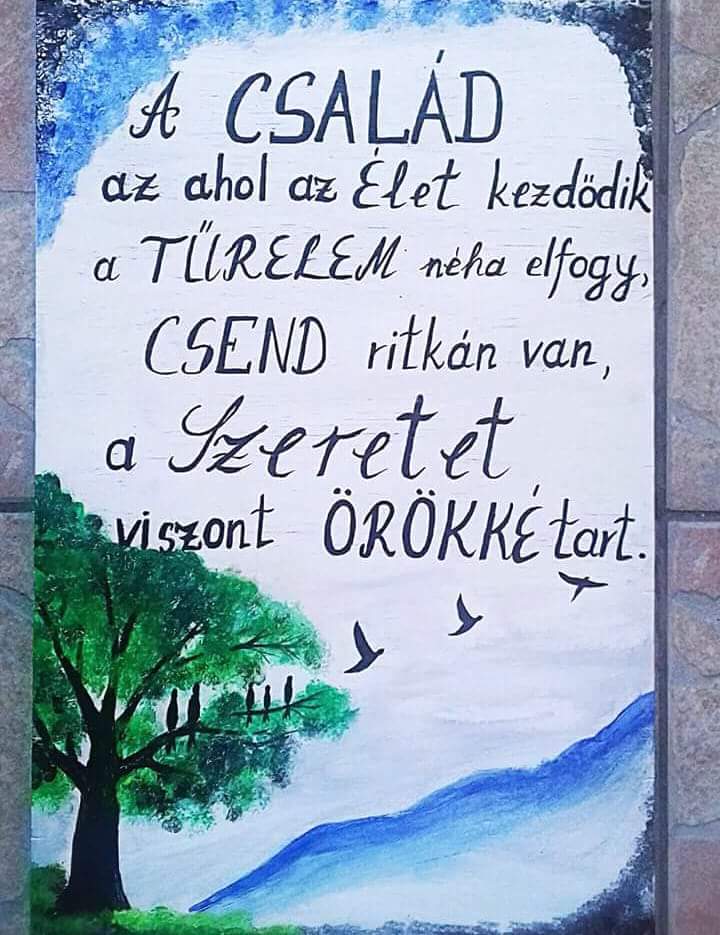 A CSALÁD
az ahol az Élet kezdödik
a TŰRELEM néha elfogy,
CSEND ritkán van,
a Szeretet
viszont ÖRÖKKÉ tart.